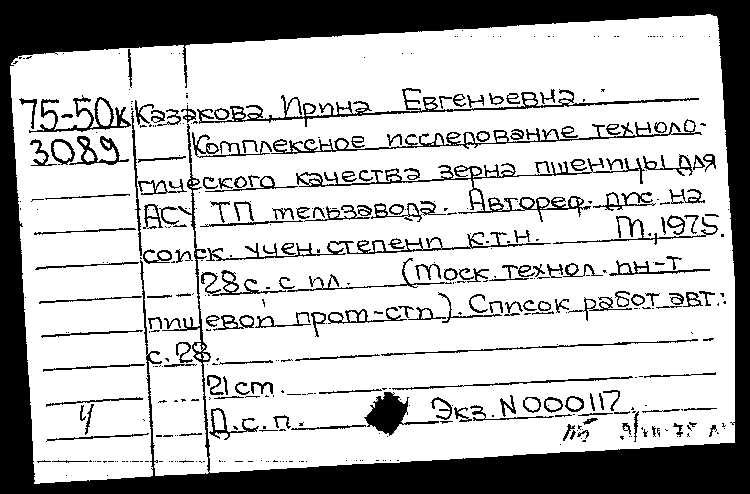 75-50к Казакова, Ирина Евгеньевна.
3089 Комплексное исследование техноло-
гического качества зерна пшеницы для
АСУ ТП мельзавода. Автореф. дис. на
соиск. учен. степени к.т.н. М., 1975.
28 с. с ил. (Моск. технол. ин-т
пищевой пром-сти). Список работ авт.:
с. 28.
21 cm.
Ч Д.с.п. Экз. N 000117